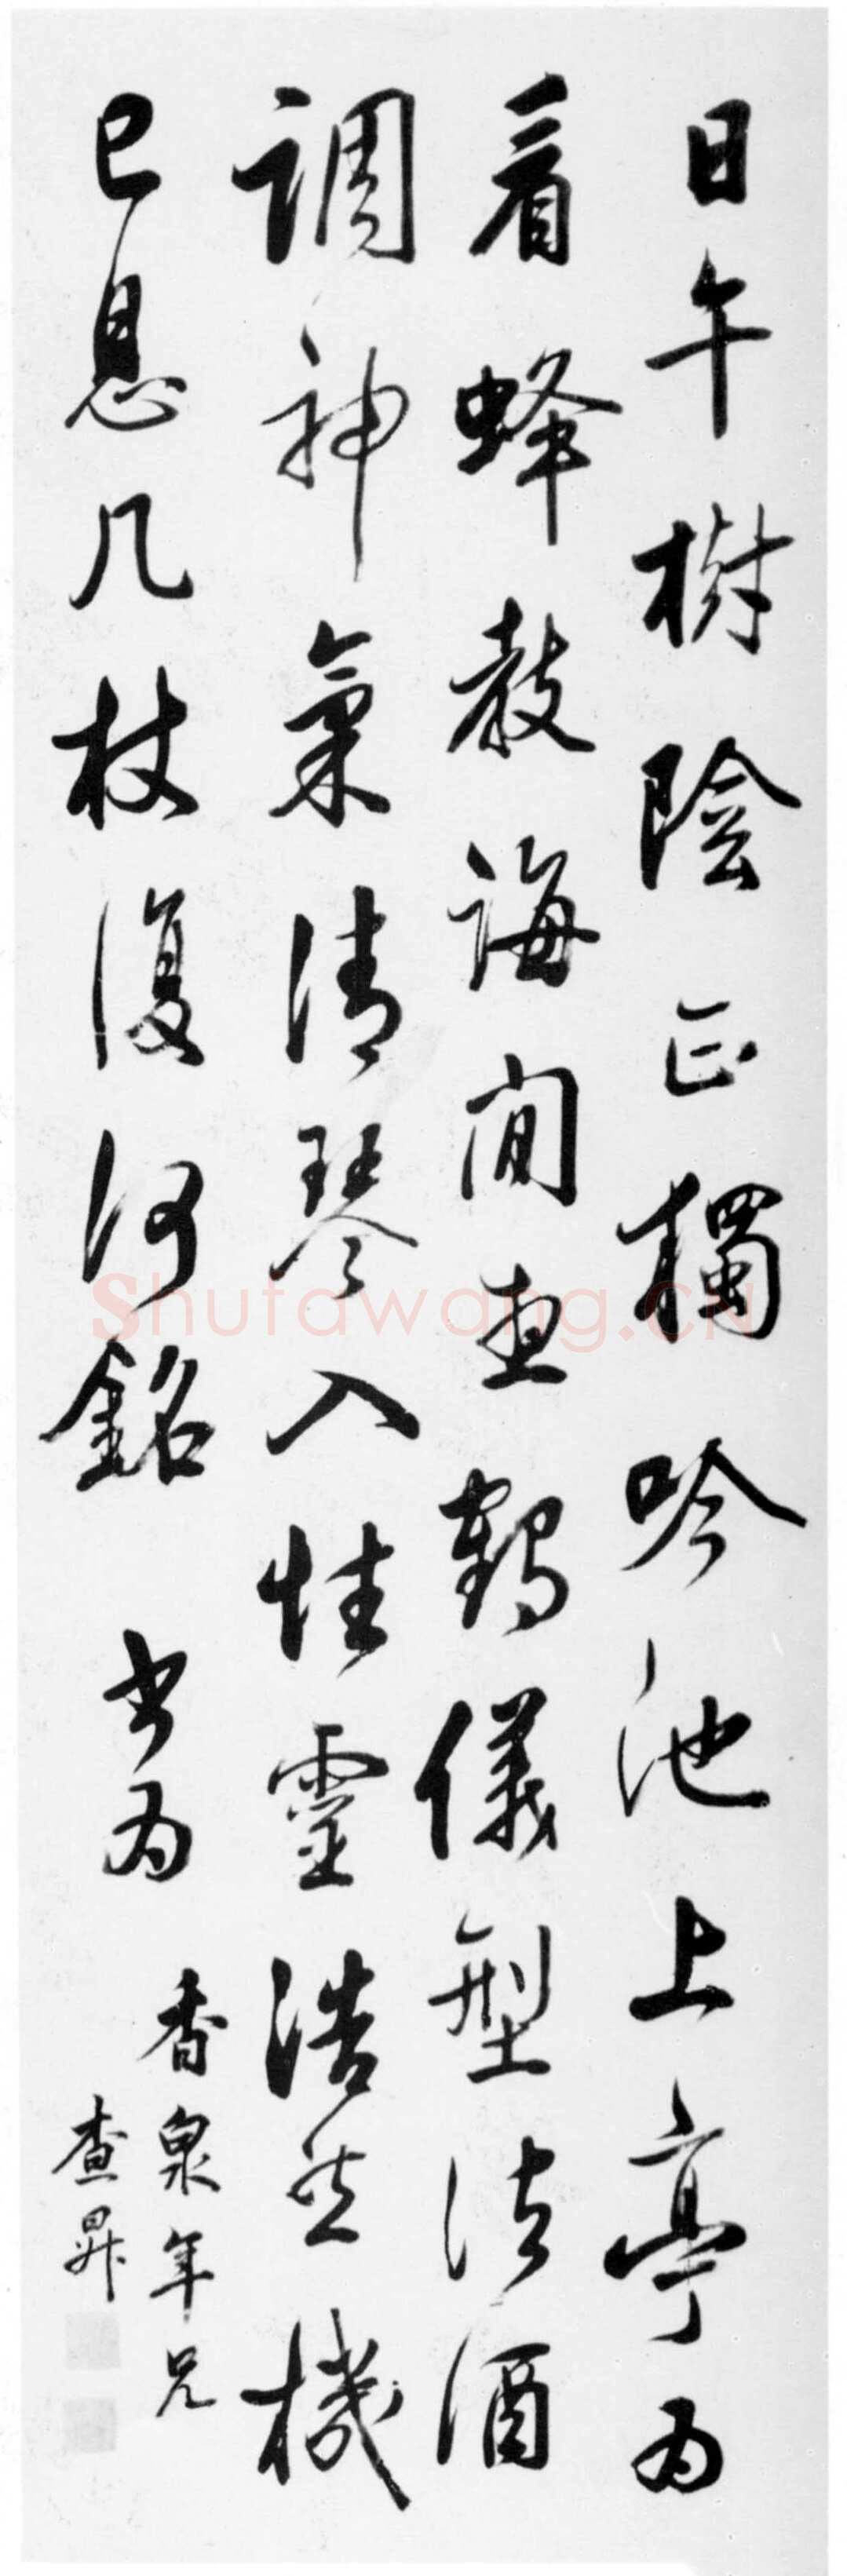 日午樹陰正獨吟池上亭为
看蜂教誨間鶴儀型法酒
調神氣清琴入性靈浩然機
已息几杖復何銘 书为
香泉年兄
查昇
Shufawang.CN